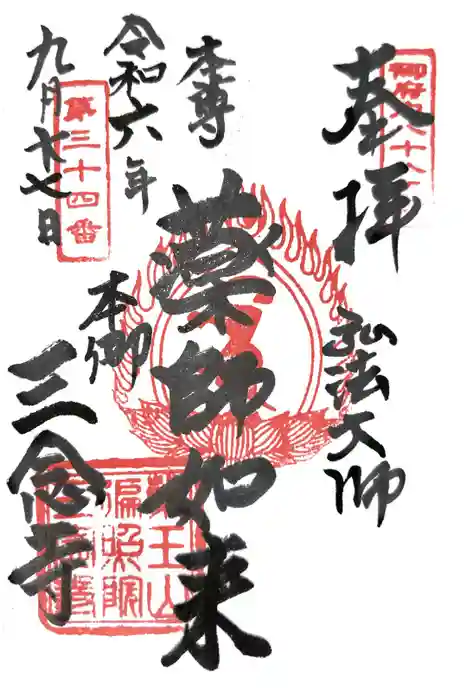 奉拝
弘法大師
御府内八十八
本尊
薬師如来
令和六年
九月 七日
第三十四番
本郷
三念寺
薬王山
遍照院